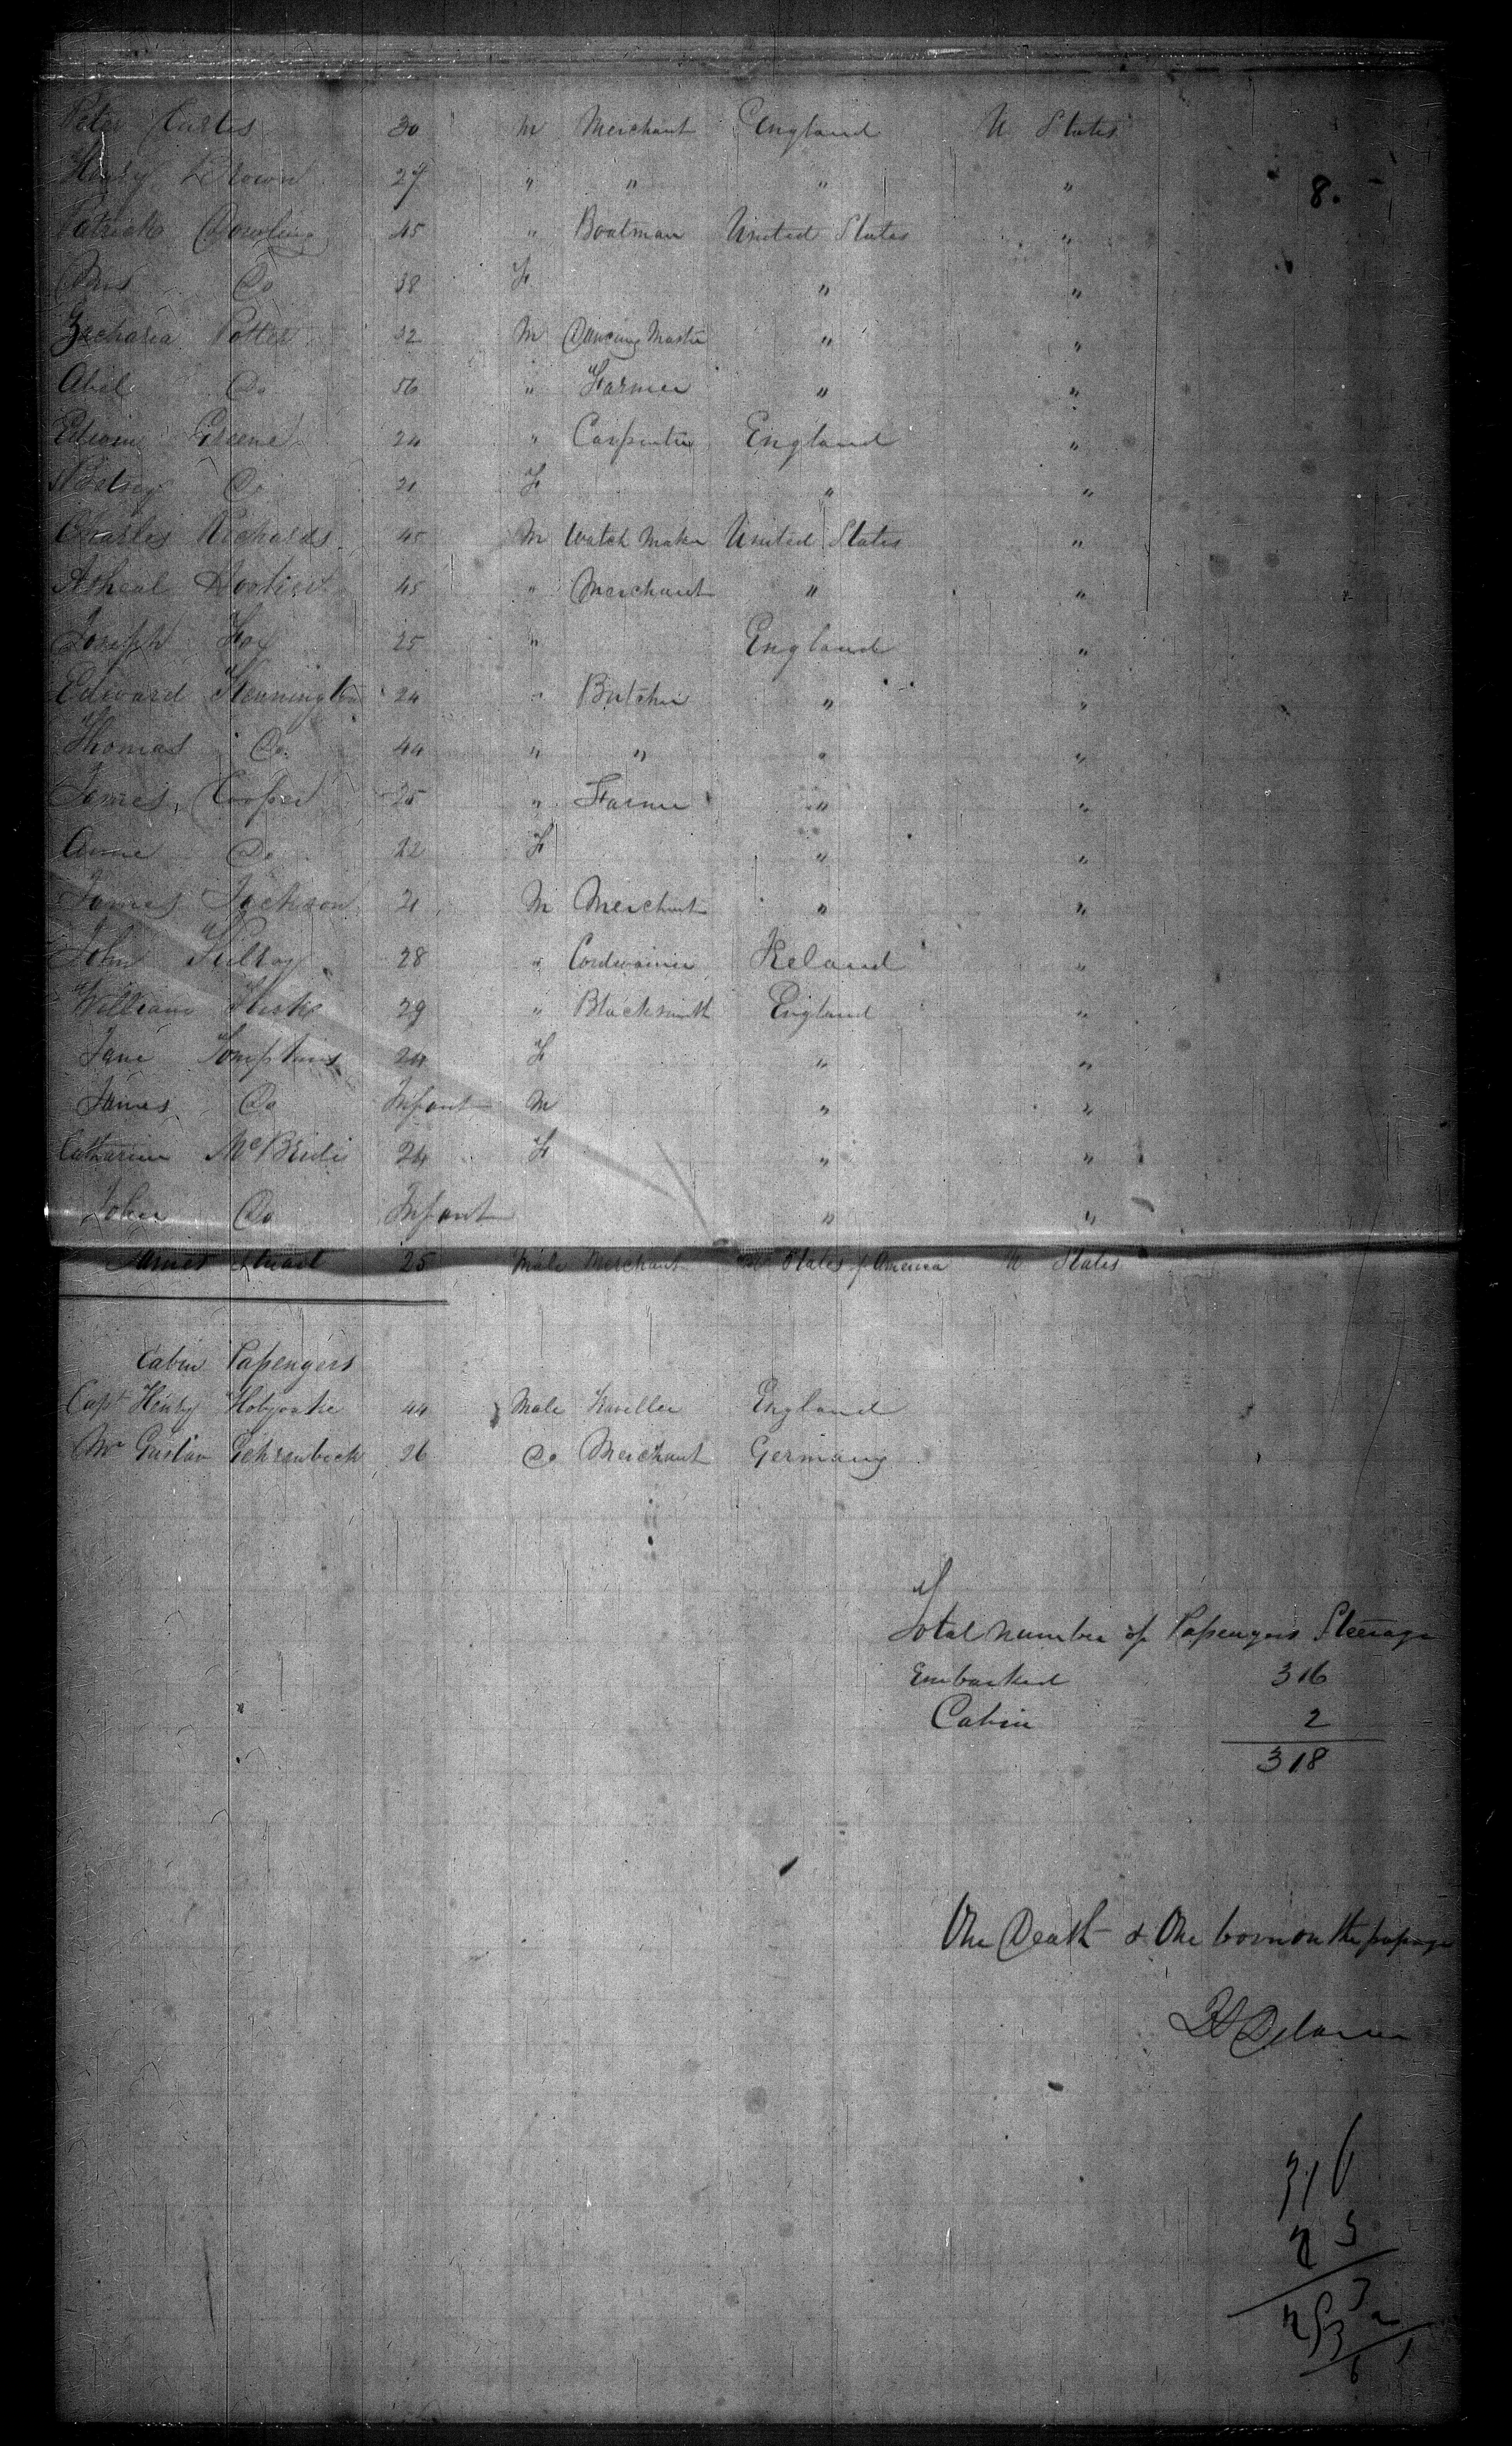 Peter Curtis 30 M Merchant England U States
Henry Brown 27 " " " "
8.
Patrick Dowling 45 " Boatman United States "
Mrs Do 38 F " "
Zacharia Potter 32 M Dancing Master " "
Abel Do 56 " Farmer " "
Edwin Greene 24 " Carpenter England "
Betsey Do 21 F " "
Charles Richards 45 M Watch Maker United States "
Asheal 45 " Merchant " "
Joseph Fox 25 " England "
Edward Kennington 24 " Butcher " "
Thomas Do 44 " " " "
James Cooper 25 " Farmer " "
Anne Do 22 F " "
James Jackson 21 M Merchant " "
John Kilroy 28 " Cordwainer Ireland "
William 29 " Blacksmith England "
Jane Tompkins 24 F " "
James Do Infant M " "
Catharine McBride 24 F " "
John Do Infant " "
James Stuart 25 Male Merchant U States of America U States
Cabin Passengers
Capt Henry 44 Male Traveller England
Mr Gustav Gehrenbeck 26 Do Merchant Germany
Total number of Passengers Steerage
Embarked 316
Cabin 2
318
One Death & One born on the passage
316